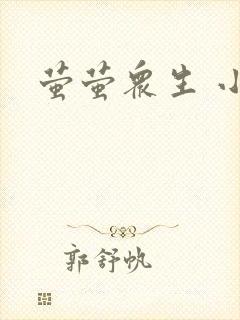 萤萤眾生 小
郭舒帆